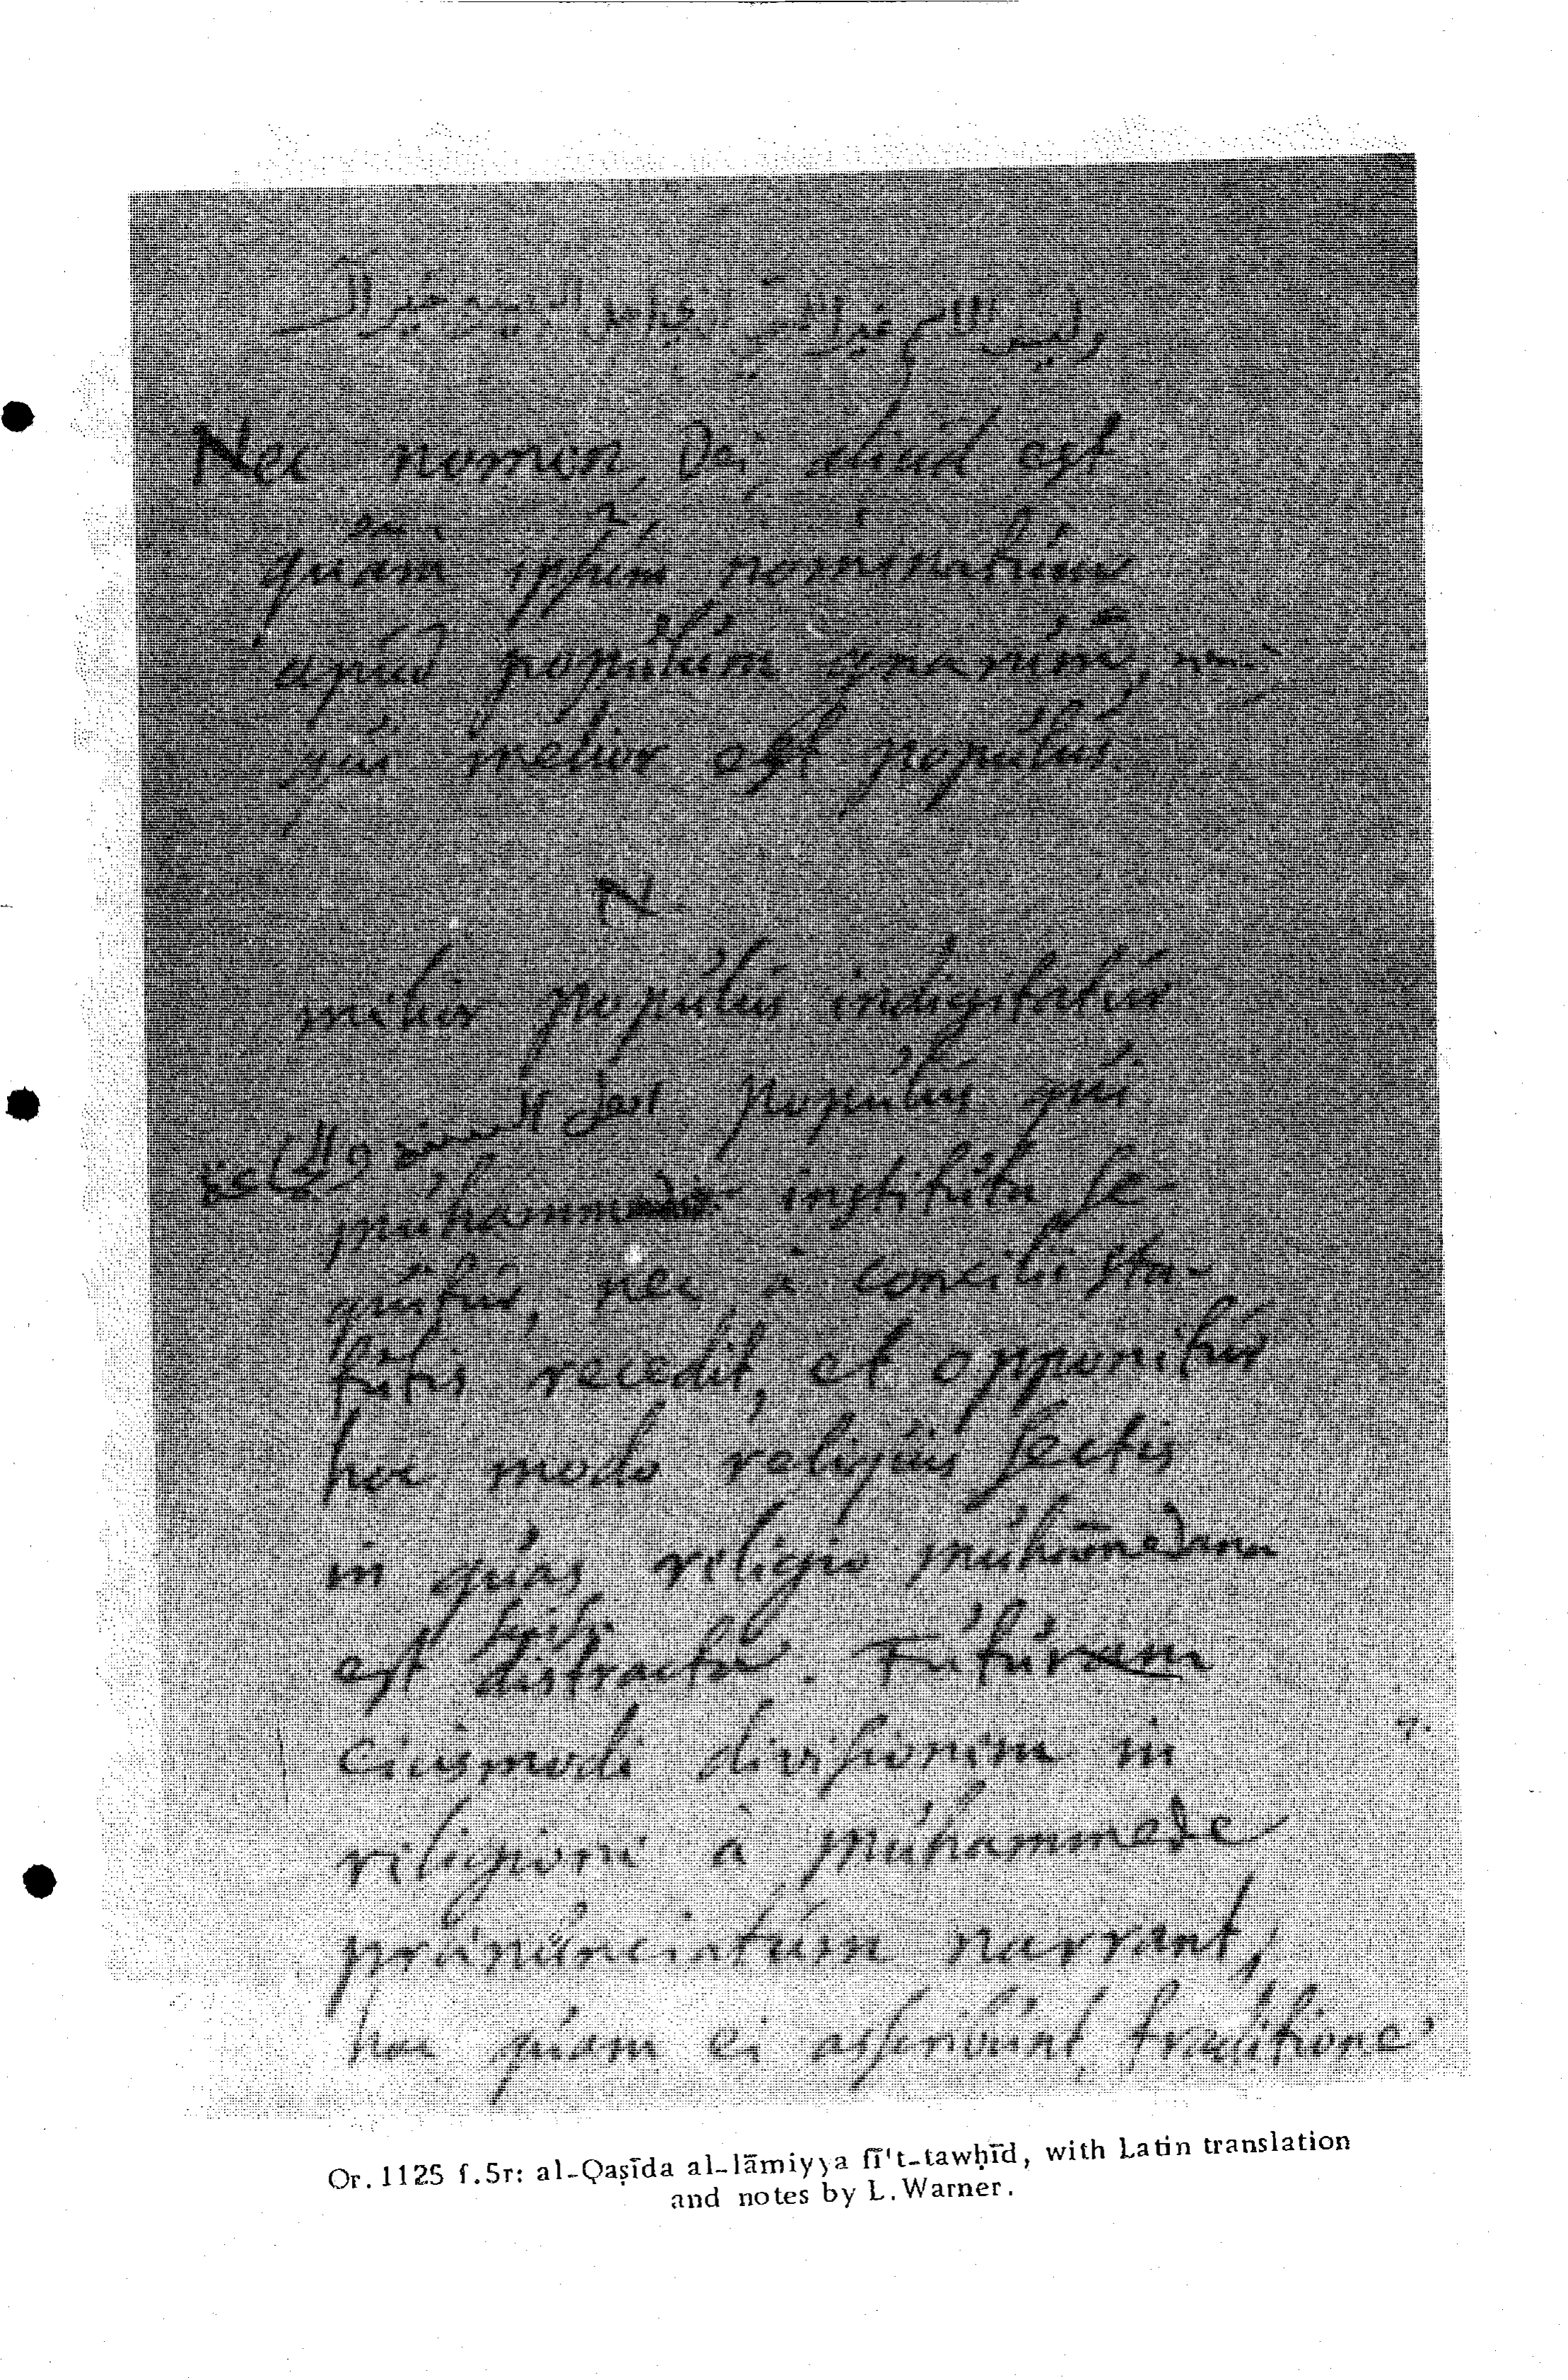 وليس الاسم غيرا للمسمى لدى اهل البصيرة خير آل
Nec nomen Dei aliud est
quam ipsum nominatum
apud populum gnarum,
qui melior est populus.
N
melior populus indigitatur
اهل السنة والجماعة populus qui
muhammedis instituta se-
quitur, nec à concilii sta-
tutis recedit, et opponitur
hoc modo reliquis sectis
in quas religio muhamedana
est distracta. Futuram
eiusmodi divisionem in
religione à muhammede
pronunciatum narrant,
hac quam ei asscribunt traditione
Or. 1125 f.5r: al-Qaṣīda al-lāmiyya fī't-tawḥīd, with Latin translation
and notes by L. Warner.